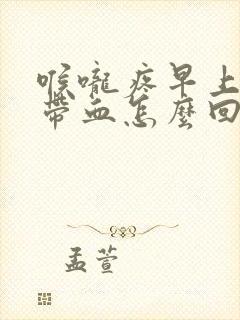 喉嚨疼早上
帶血怎麼回
孟萱